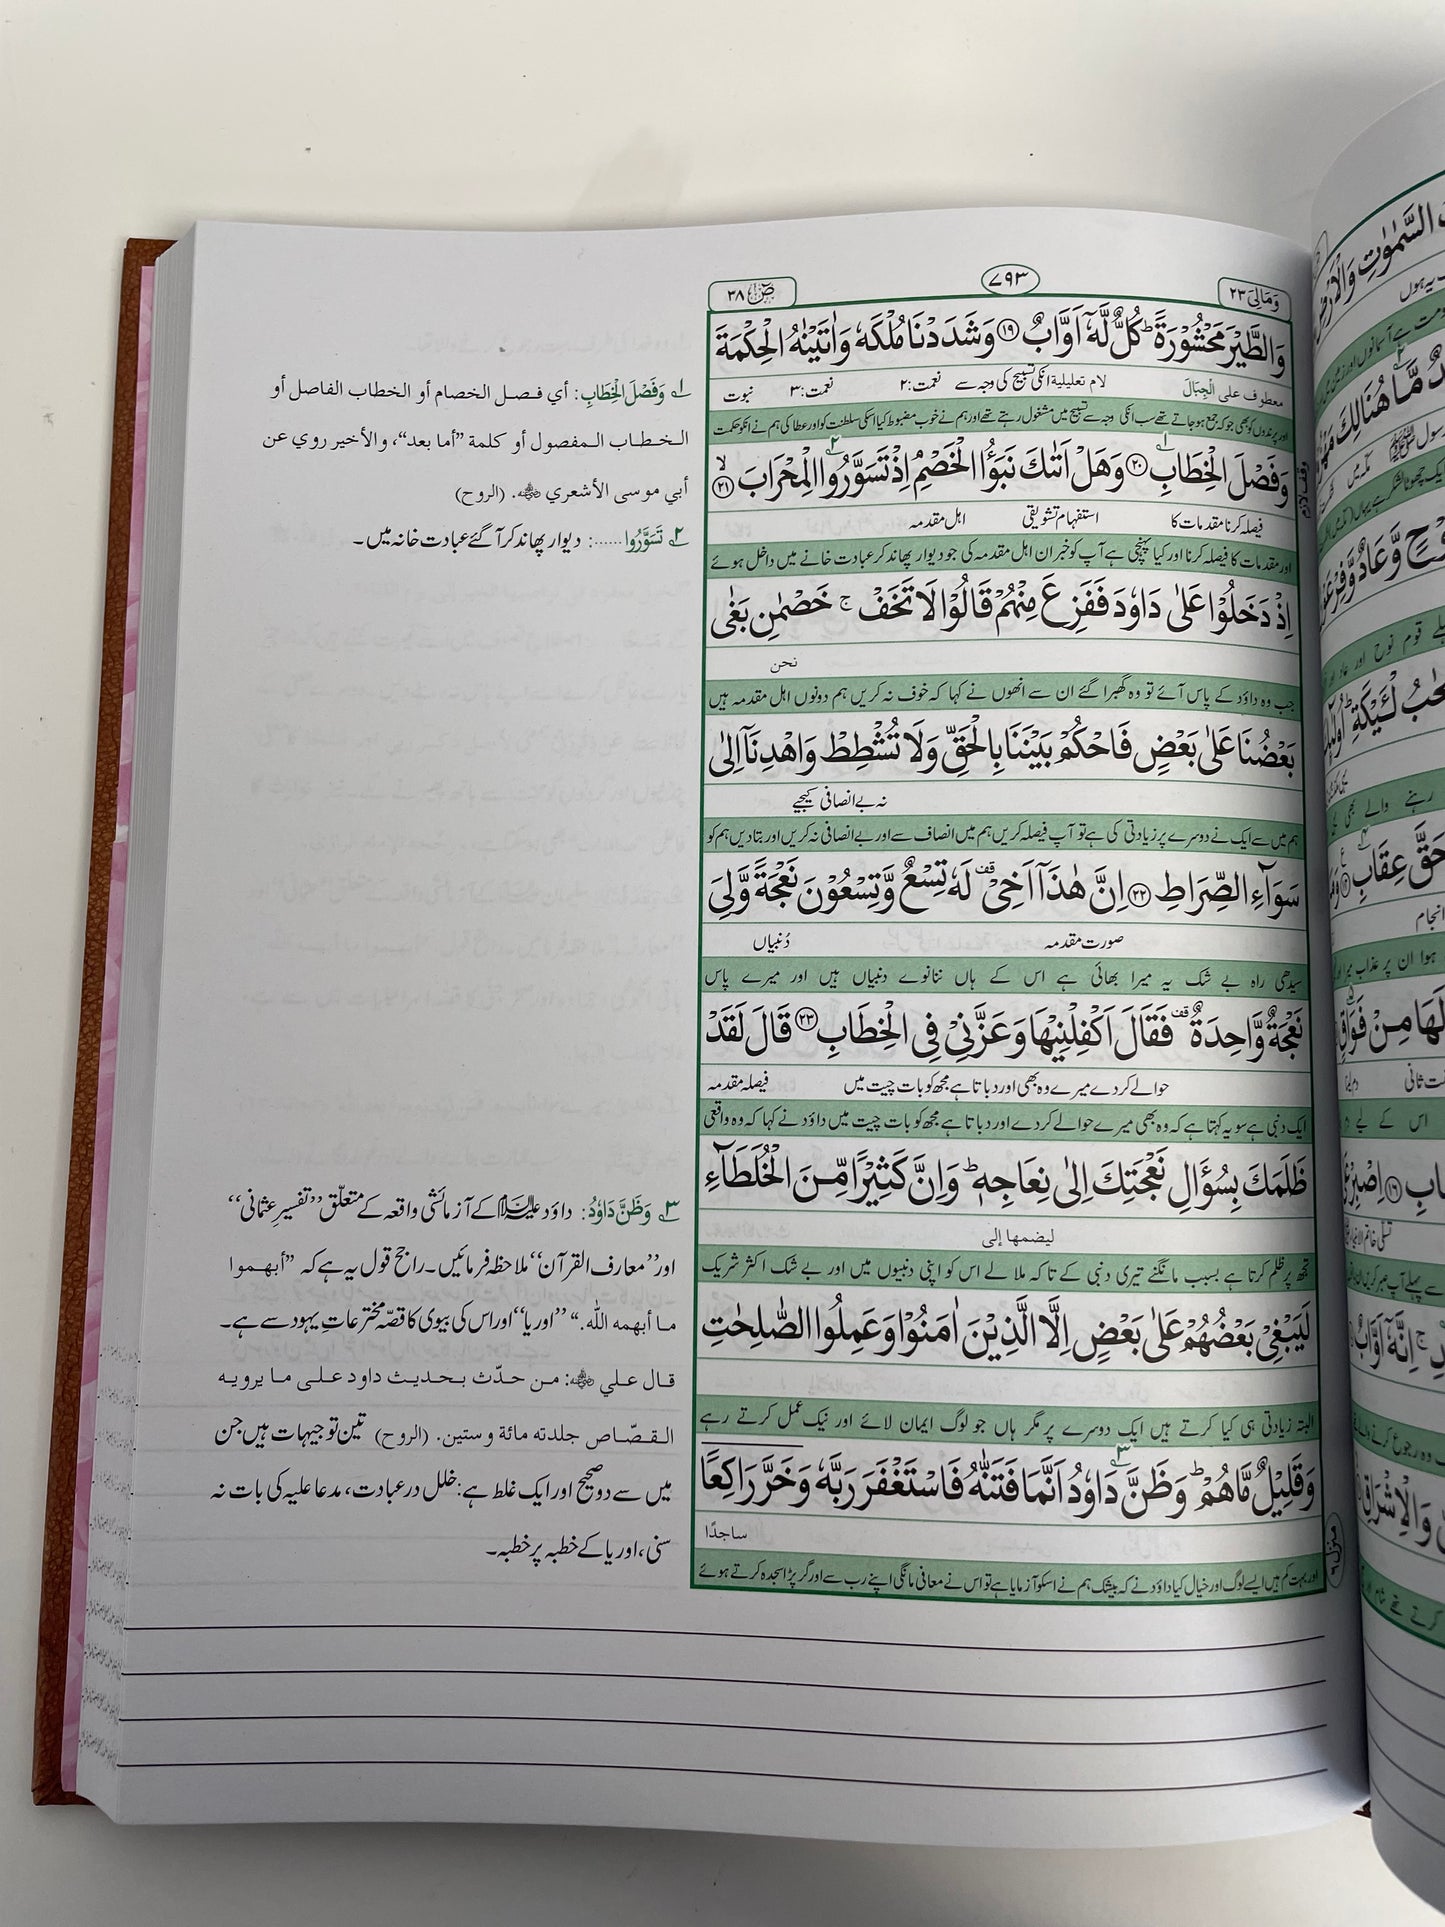 وَمَالِیَ ۲۳
۷۹۳
صٓ ۳۸
وَالطَّيْرَ مَحْشُوْرَةً ؕ كُلٌّ لَّهٗۤ اَوَّابٌ ⑲ وَشَدَدْنَا مُلْكَهٗ وَاٰتَيْنٰهُ الْحِكْمَةَ
معطوف على الْجِبَالَ لام تعليلية انکی تسبیح کی وجہ سے نعمت:۲ نعمت:۳ نبوت
اور پرندوں کو بھی جو کہ جمع ہو جاتے تھے سب انکی وجہ سے تسبیح میں مشغول رہتے تھے اور ہم نے خوب مضبوط کیا اسکی سلطنت کو اور عطا کی ہم نے انکو حکمت
وَفَصْلَ الْخِطَابِ ۱ ⑳ وَهَلْ اَتٰىكَ نَبَؤُا الْخَصْمِ ۘ اِذْ تَسَوَّرُوا ۲ الْمِحْرَابَ ㉑ ۙ
وقف لازم
فیصلہ کرنا مقدمات کا استفہام تشویقی اہل مقدمہ
اور مقدمات کا فیصلہ کرنا اور کیا پہنچی ہے آپ کو خبر ان اہل مقدمہ کی جو دیوار پھاند کر عبادت خانے میں داخل ہوئے
اِذْ دَخَلُوْا عَلٰى دَاوٗدَ فَفَزِعَ مِنْهُمْ قَالُوْا لَا تَخَفْ ۚ خَصْمٰنِ بَغٰى
نحن
جب وہ داؤد کے پاس آئے تو وہ گھبرا گئے ان سے انھوں نے کہا کہ خوف نہ کریں ہم دونوں اہل مقدمہ ہیں
بَعْضُنَا عَلٰى بَعْضٍ فَاحْكُمْ بَيْنَنَا بِالْحَقِّ وَلَا تُشْطِطْ وَاهْدِنَاۤ اِلٰى
نہ بے انصافی کیجیے
ہم میں سے ایک نے دوسرے پر زیادتی کی ہے تو آپ فیصلہ کریں ہم میں انصاف سے اور بے انصافی نہ کریں اور بتا دیں ہم کو
سَوَآءِ الصِّرَاطِ ㉒ اِنَّ هٰذَاۤ اَخِيْ ۟ لَهٗ تِسْعٌ وَّتِسْعُوْنَ نَعْجَةً وَّلِيَ
صورت مقدمہ دُنبیاں
سیدھی راہ بے شک یہ میرا بھائی ہے اس کے ہاں ننانوے دنبیاں ہیں اور میرے پاس
نَعْجَةٌ وَّاحِدَةٌ ۟ فَقَالَ اَكْفِلْنِيْهَا وَعَزَّنِيْ فِى الْخِطَابِ ㉓ قَالَ لَقَدْ
حوالے کر دے میرے وہ بھی اور دباتا ہے مجھ کو بات چیت میں فیصلہ مقدمہ
ایک دنبی ہے سو یہ کہتا ہے کہ وہ بھی میرے حوالے کر دے اور دباتا ہے مجھ کو بات چیت میں داؤد نے کہا کہ وہ واقعی
ظَلَمَكَ بِسُؤَالِ نَعْجَتِكَ اِلٰى نِعَاجِهٖ ؕ وَاِنَّ كَثِيْرًا مِّنَ الْخُلَطَآءِ
ليضمها إلى
تجھ پر ظلم کرتا ہے بسبب مانگنے تیری دنبی کے تاکہ ملا لے اس کو اپنی دنبیوں میں اور بے شک اکثر شریک
لَيَبْغِيْ بَعْضُهُمْ عَلٰى بَعْضٍ اِلَّا الَّذِيْنَ اٰمَنُوْا وَعَمِلُوا الصّٰلِحٰتِ
البتہ زیادتی ہی کیا کرتے ہیں ایک دوسرے پر مگر ہاں جو لوگ ایمان لائے اور نیک عمل کرتے رہے
وَقَلِيْلٌ مَّا هُمْ ؕ وَظَنَّ ۳ دَاوٗدُ اَنَّمَا فَتَنّٰهُ فَاسْتَغْفَرَ رَبَّهٗ وَخَرَّ رَاكِعًا
ساجدًا
اور بہت کم ہیں ایسے لوگ اور خیال کیا داؤد نے کہ بیشک ہم نے اسکو آزمایا ہے تو اس نے معافی مانگی اپنے رب سے اور گر پڑا سجدہ کرتے ہوئے
منزل ۶
۱ وَفَصْلَ الْخِطَابِ: أي فـصـل الخصام أو الخطاب الفاصل أو
الـخـطـاب الـمفصول أو كلمة ”أما بعد“، والأخير روي عن
أبي موسى الأشعري رضي الله عنه. (الروح)
۲ تَسَوَّرُوا......: دیوار پھاند کر آ گئے عبادت خانہ میں۔
۳ وَظَنَّ دَاوٗدُ: داؤد علیہ السلام کے آزمائشی واقعہ کے متعلّق ”تفسیرِ عثمانی“
اور ”معارف القرآن“ ملاحظہ فرمائیں۔ راجح قول یہ ہے کہ ”أبهـمـوا
مـا أبهمه الله.“ ”اوریا“ اور اس کی بیوی کا قصّہ مخترعاتِ یہود سے ہے۔
قـال عـلـي رضي الله عنه: مـن حـدّث بـحـديـث داود عـلـى مـا يرويـه
الـقـصّـاص جلدته مائة وستين. (الروح) تین توجیہات ہیں جن
میں سے دو صحیح اور ایک غلط ہے: خلل در عبادت، مدعا علیہ کی بات نہ
سنی، اوریا کے خطبہ پر خطبہ۔